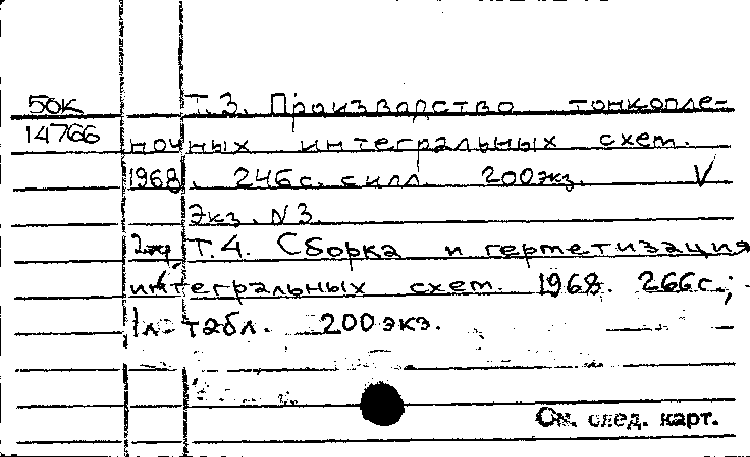 50к Т.3. Производство тонкопле-
14766 ночных интегральных схем.
1968. 246с. с илл. 200экз. V
Экз. N3.
Т.4. Сборка и герметизация
интегральных схем. 1968. 266с.;
1л. табл. 200экз.
См. след. карт.